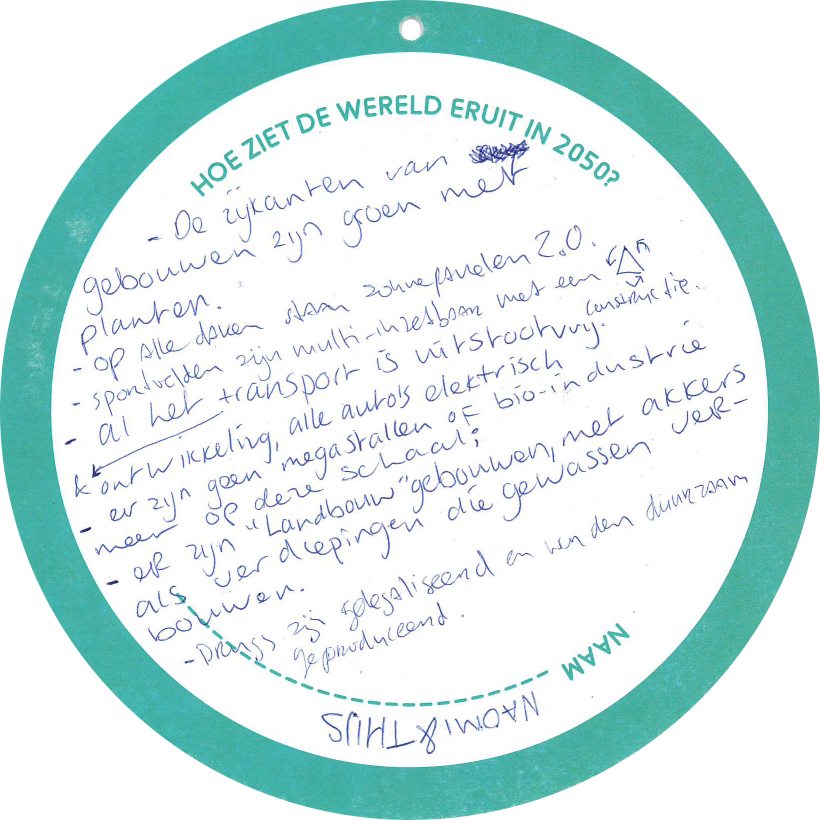 HOE ZIET DE WERELD ERUIT IN 2050?
- De zijkanten van
gebouwen zijn groen met
planten.
- op alle daken staan zonnepanelen 2.0.
- sportvelden zijn multi-inzetbaar met een
constructie.
- al het transport is uitstootvrij.
ontwikkeling, alle auto's elektrisch
- er zijn geen megastallen of bio-industrie
meer op deze schaal;
- er zijn "Landbouw" gebouwen, met akkers
als verdiepingen die gewassen ver-
bouwen.
- Drugs zijn gelegaliseerd en worden duurzaam
geproduceerd.
NAAM
NAOMI & THIJS